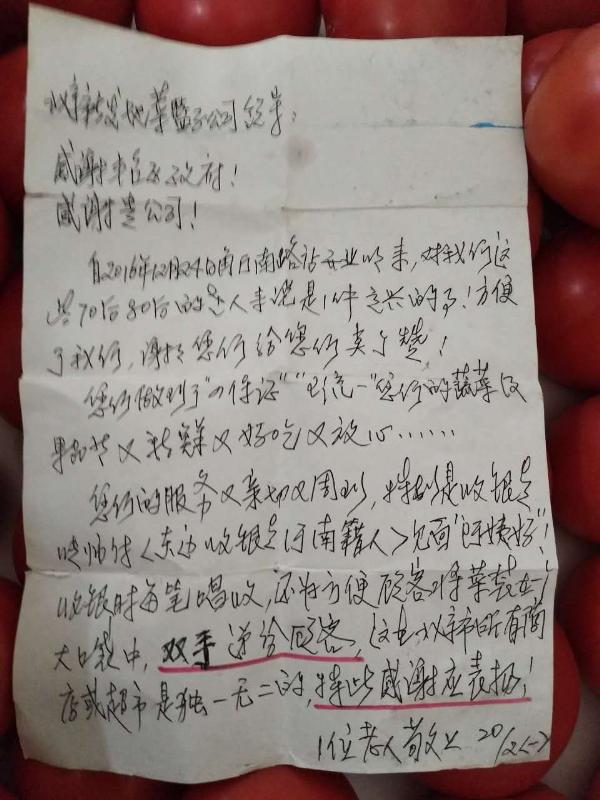 北京市新发地菜篮子公司领导:
感谢丰台区政府!
感谢贵公司!
自2016年12月24日角门南路站开业以来,对我们这
些70后80后的老人来说是1件高兴的事!方便
了我们,谢谢您们给您们卖了赞!
您们做到了"保证""统一"您们的蔬菜及
果品等又新鲜又好吃又放心……
您们的服务又亲切又周到,特别是收银员
师付<东边收银员河南籍人>见面"阿姨好"!
收银时每笔唱收,还为方便顾客将菜装在一
大口袋中,双手递给顾客,这在北京市所有商
店或超市是独一无二的,特此感谢应表扬!
1位老人敬上 20/2<一>